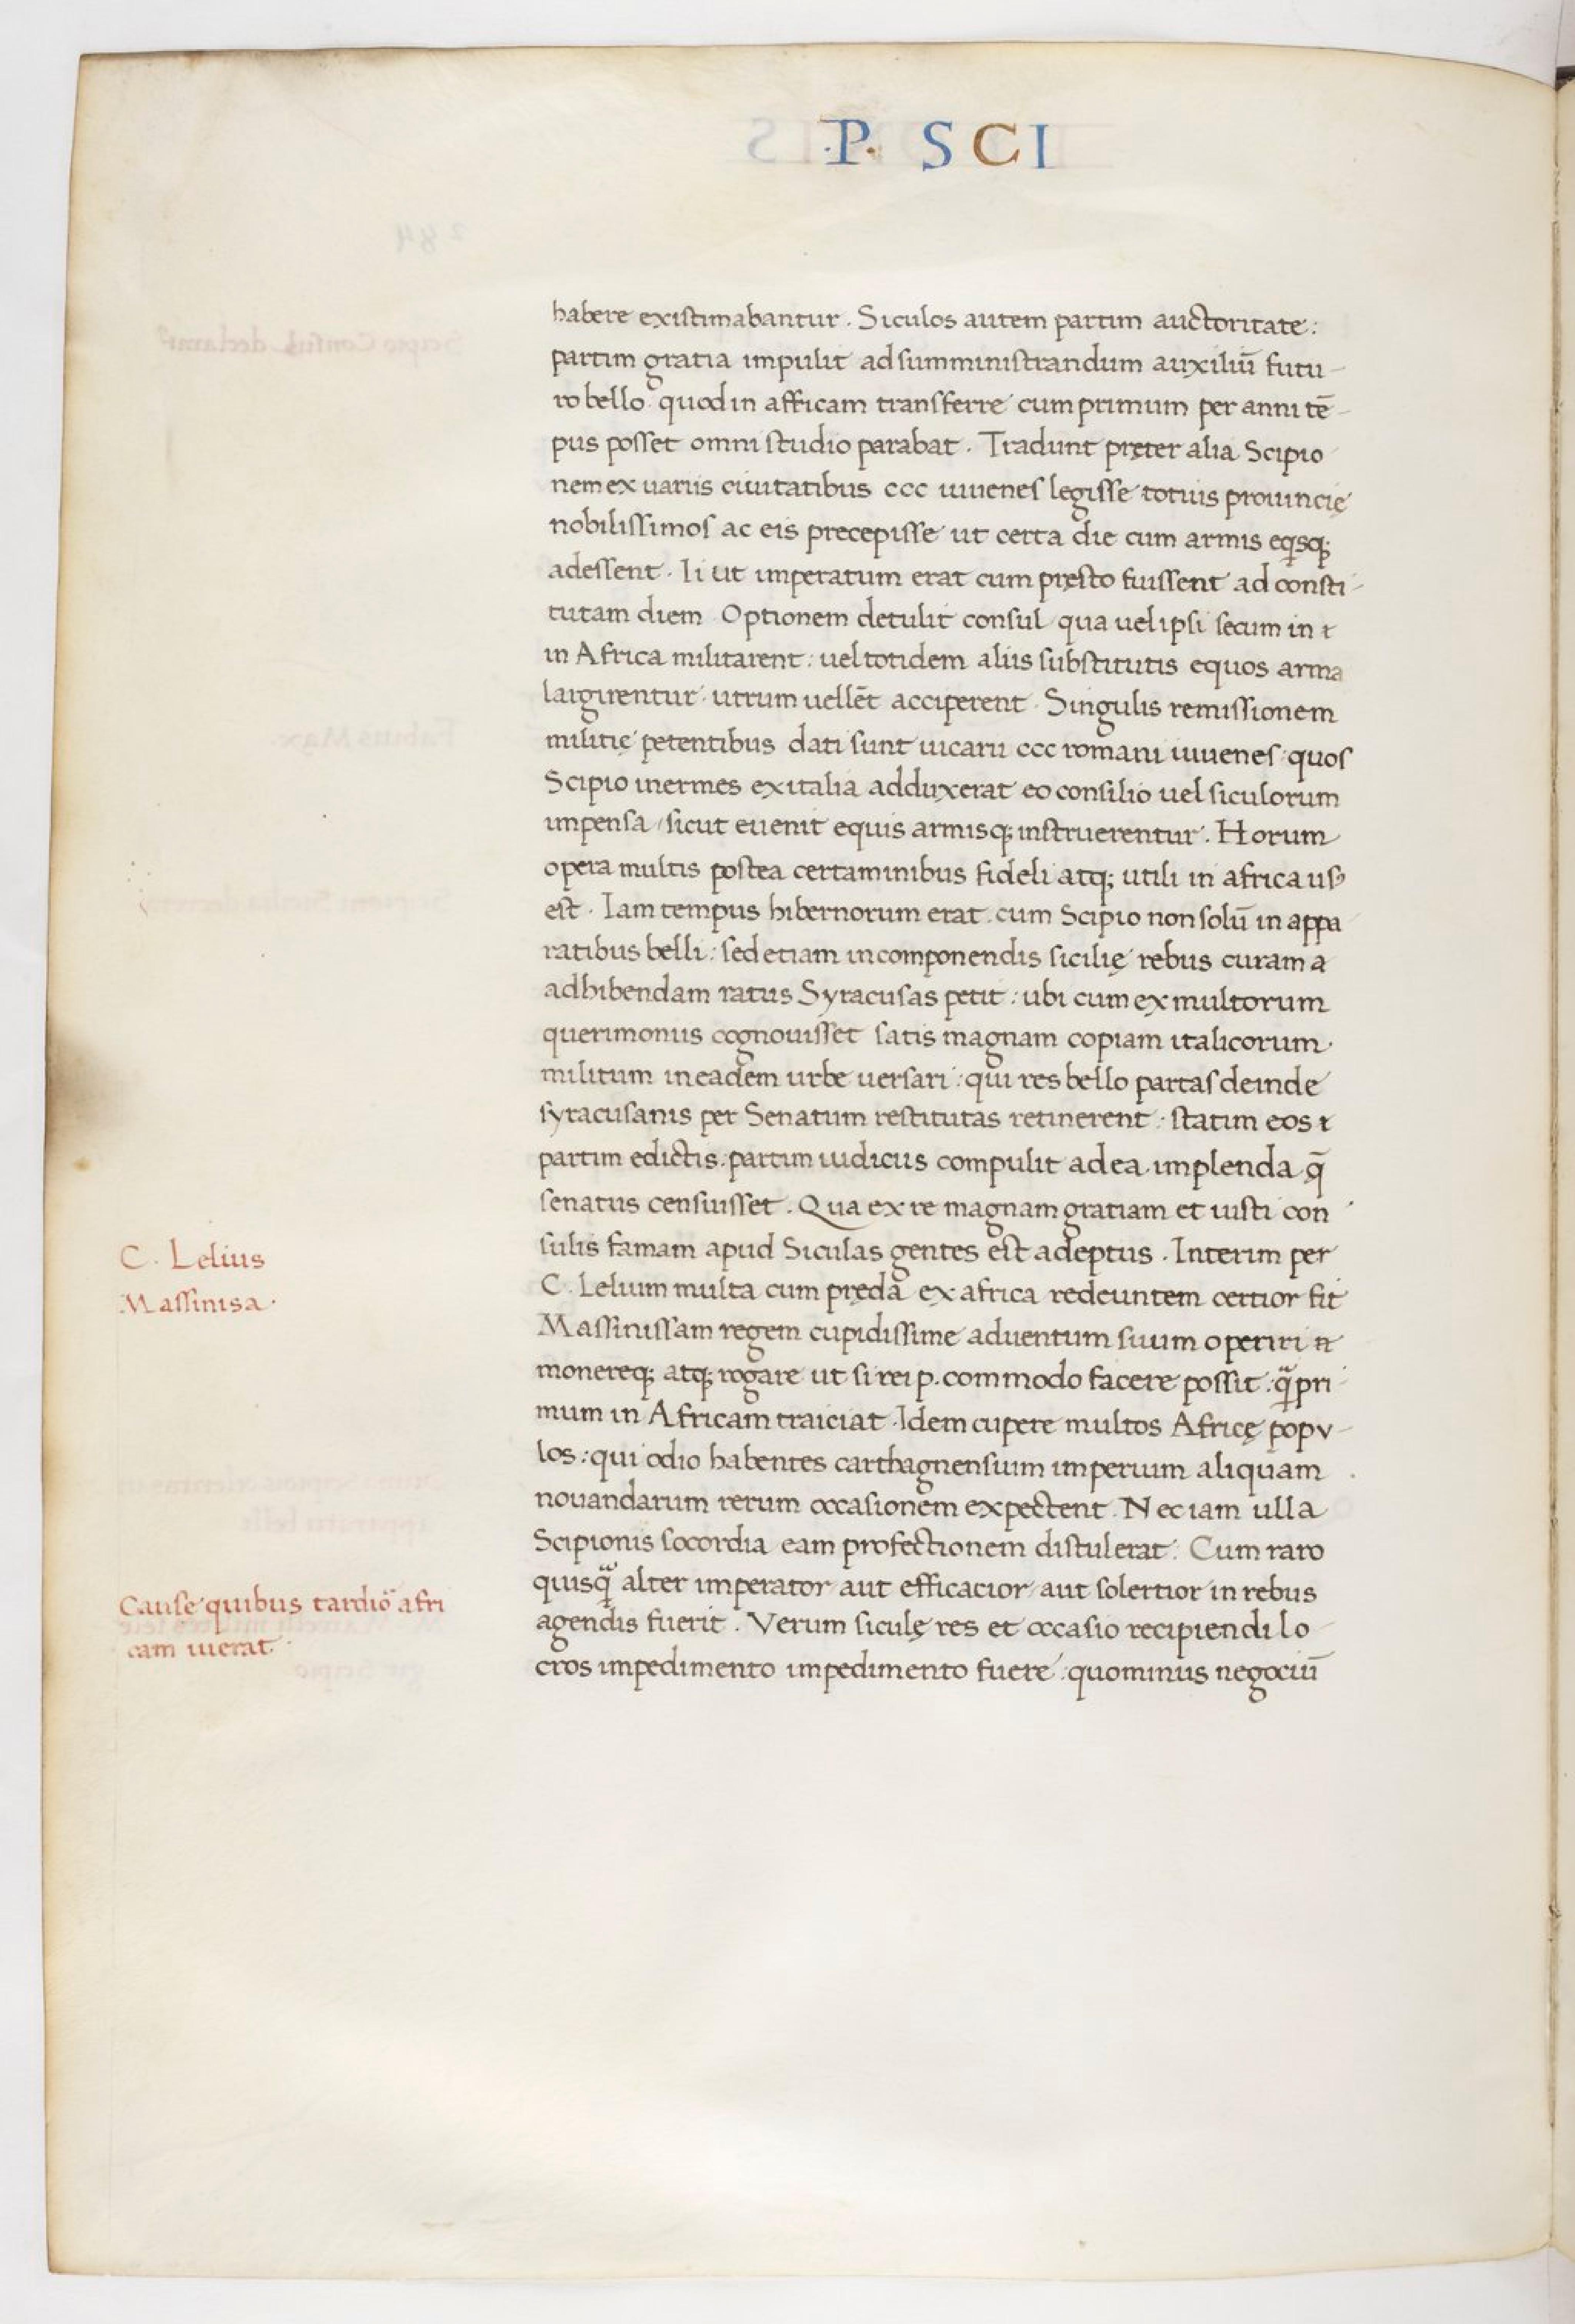 ·P· SCI
habere existimabantur. Siculos autem partim auctoritate:
partim gratia impulit ad sumministrandum auxiliū futu-
ro bello quod in affricam transferre cum primum per anni tē-
pus posset omni studio parabat. Tradunt pręter alia Scipio
nem ex uariis ciuitatibus ccc iuuenes legisse totius prouincię
nobilissimos ac eis precepisse ut certa die cum armis eqisq;
adessent. Ii ut imperatum erat cum pręsto fuissent ad consti-
tutam diem Optionem detulit consul qua uel ipsi secum in
in Africa militarent: uel totidem aliis substitutis equos arma
largirentur utrum uellēt acciperent. Singulis remissionem
militię petentibus dati sunt uicarii ccc romani iuuenes quos
Scipio inermes ex italia adduxerat eo consilio uel siculorum
impensa/sicut euenit equis armisq; instruerentur. Horum
opera multis postea certaminibus fideli atq; utili in africa usꝰ
est. Iam tempus hibernorum erat cum Scipio non solū in appa
ratibus belli: sed etiam in componendis sicilię rebus curam a
adhibendam ratus Syracusas petit: ubi cum ex multorum
querimoniis cognouisset satis magnam copiam italicorum.
militum in eadem urbe uersari: qui res bello partas deinde
syracusanis per Senatum restitutas retinerent: statim eos
partim edictis. partim iudiciis compulit ad ea implenda q̄
senatus censuisset. Qua ex re magnam gratiam et iusti con
sulis famam apud Siculas gentes est adeptus. Interim per
C. Lelius
C. Lelium multa cum pręda ex africa redeuntem certior fit
Massinisa.
Massinissam regem cupidissime aduentum suum operiri
monereq; atq; rogare ut si rei p. commodo facere possit: q̄pri
mum in Africam traiciat. Idem cupere multos Africę popu-
los: qui odio habentes carthagnensium imperium aliquam
nouandarum rerum occasionem expectent. Nec iam ulla
Scipionis socordia eam profectionem distulerat: Cum raro
quisq̄ alter imperator/aut efficacior/aut solertior in rebus
Cause quibus tardiꝰ afri
agendis fuerit. Verum siculę res et occasio recipiendi lo
cam iuerat.
cros impedimento impedimento fuere: quominus negociū